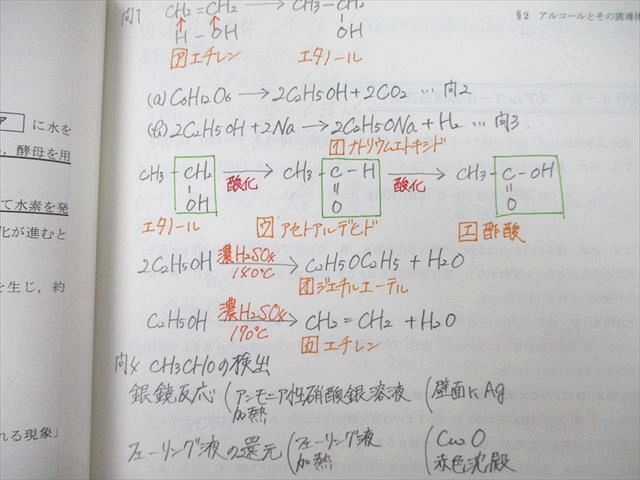 §2 アルコールとその誘導体
問1 CH2=CH2 → CH3-CH2
H-OH OH
ア エチレン エタノール
(a) C6H12O6 → 2C2H5OH + 2CO2 … 問2
(b) 2C2H5OH + 2Na → 2C2H5ONa + H2 … 問3
イ ナトリウムエトキシド
CH3-CH2 酸化→ CH3-C-H 酸化→ CH3-C-OH
OH O O
エタノール ウ アセトアルデヒド エ 酢酸
2C2H5OH 濃H2SO4 140℃→ C2H5OC2H5 + H2O
オ ジエチルエーテル
C2H5OH 濃H2SO4 170℃→ CH2=CH2 + H2O
エチレン
問4 CH3CHOの検出
銀鏡反応 (アンモニア性硝酸銀溶液 (壁面にAg
加熱
フェーリング液の還元 (フェーリング液 (Cu2O
加熱 赤色沈殿
ア に水を
，酵母を用
て水素を発
化が進むと
を生じ，約
れる現象」